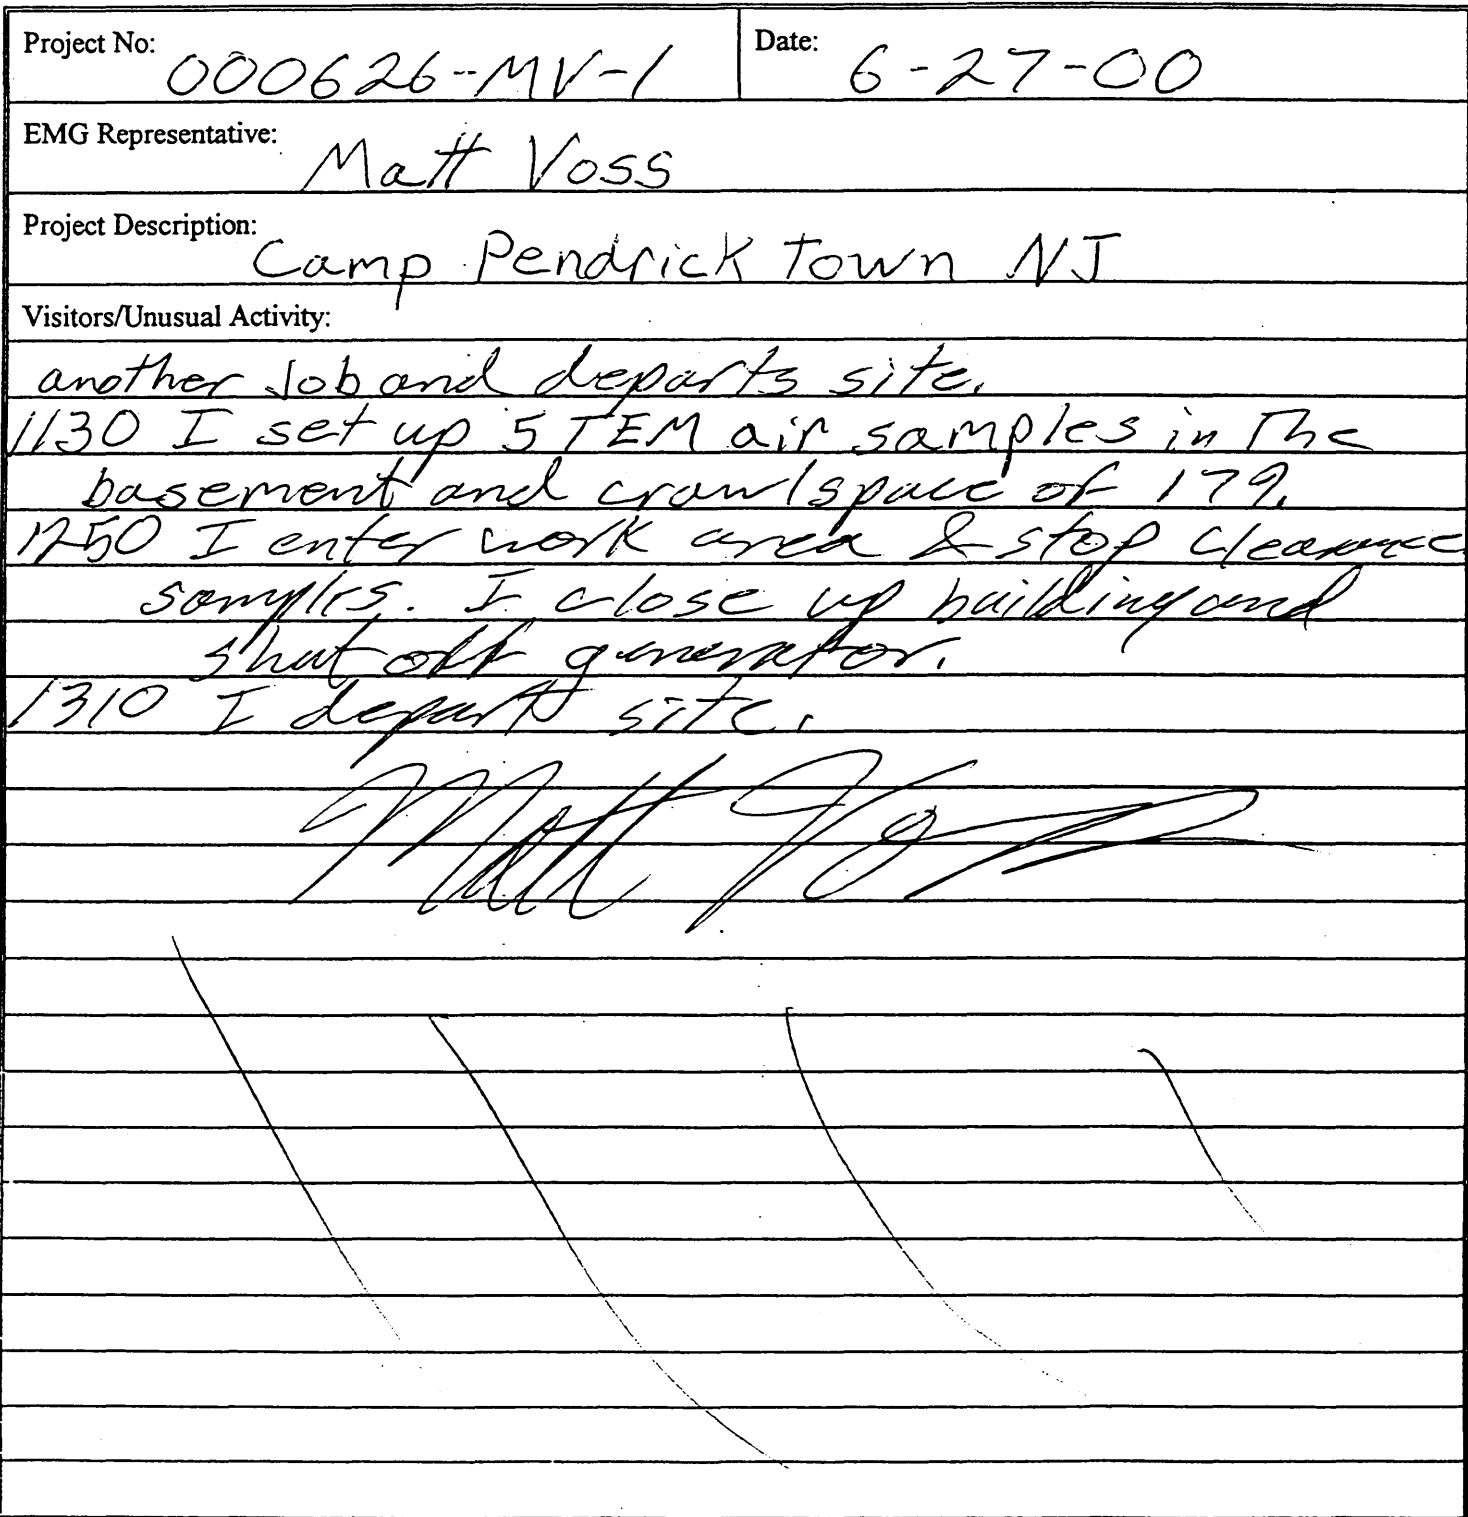 Project No: 000626-MV-1 Date: 6-27-00
EMG Representative: Matt Voss
Project Description: Camp Pendrick Town NJ
Visitors/Unusual Activity:
another Job and departs site.
1130 I set up 5 TEM air samples in The
basement and crawlspace of 179.
1250 I enter work area & stop clearance
samples. I close up building and
shut off generator.
1310 I depart site.
Matt Voss